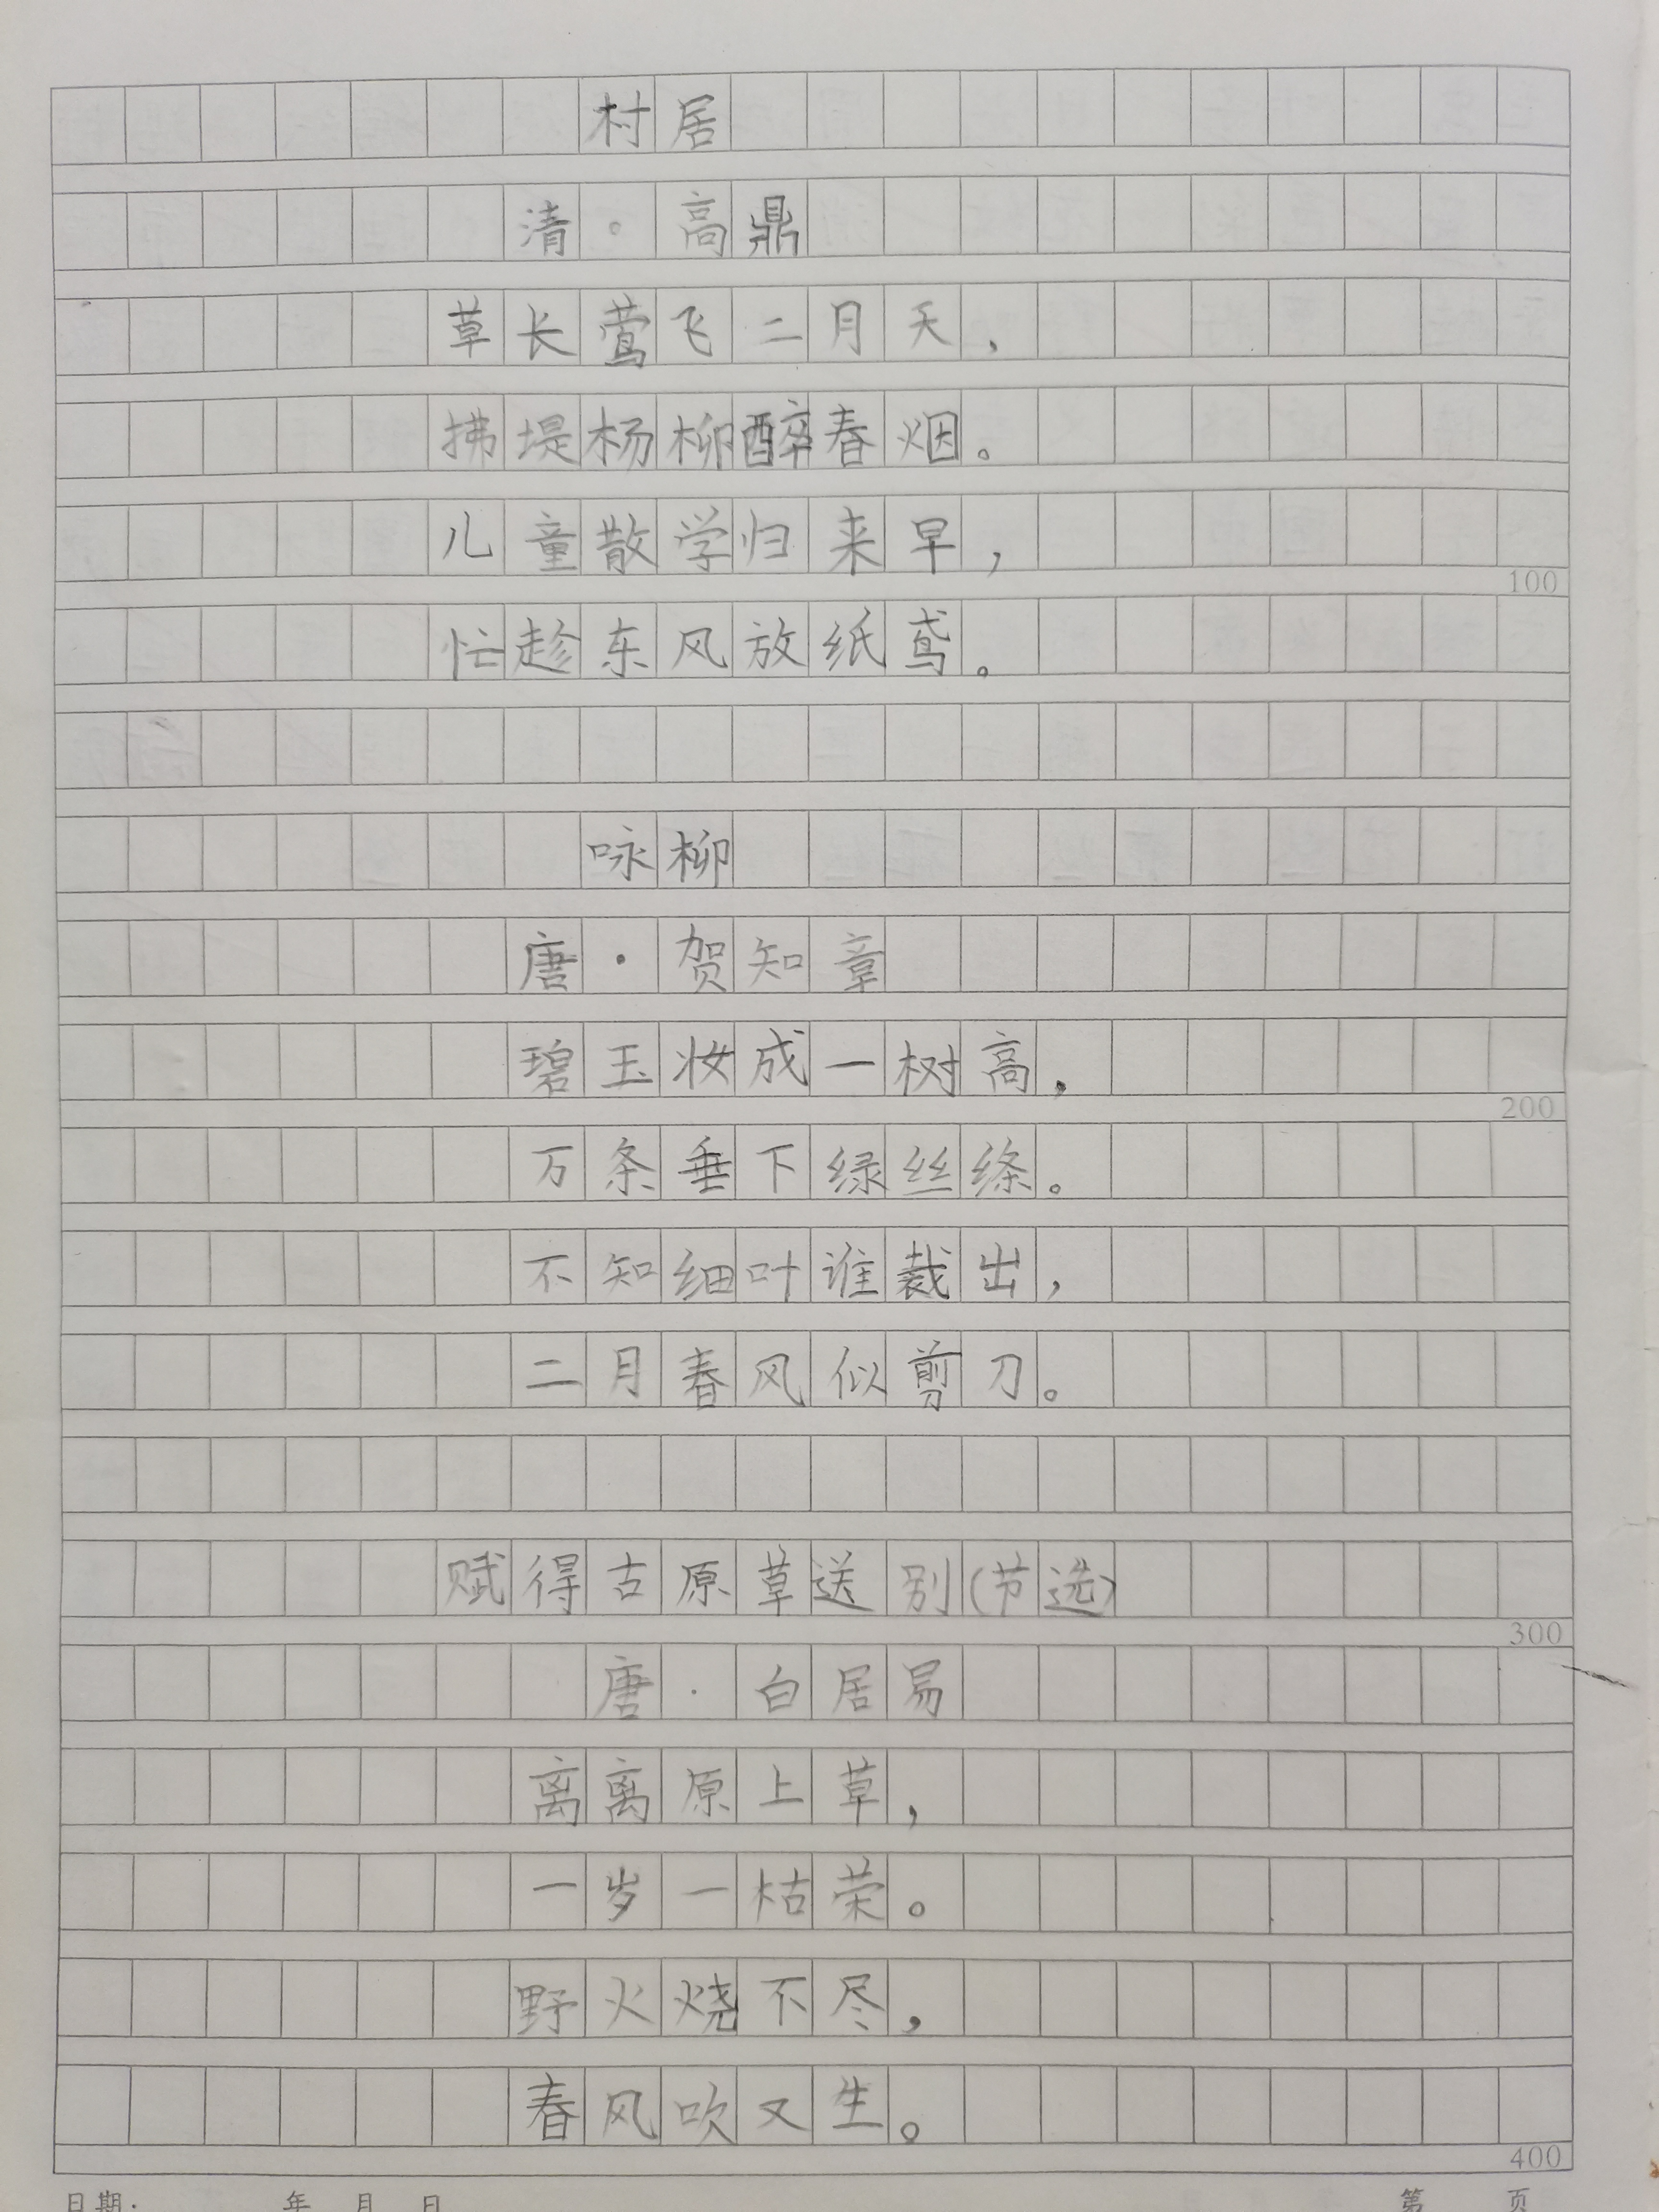 村居
清。高鼎
草长莺飞二月天，
拂堤杨柳醉春烟。
儿童散学归来早，
100
忙趁东风放纸鸢。
咏柳
唐·贺知章
碧玉妆成一树高，
200
万条垂下绿丝绦。
不知细叶谁裁出，
二月春风似剪刀。
赋得古原草送别（节选）
300
唐·白居易
离离原上草，
一岁一枯荣。
野火烧不尽，
春风吹又生。
400
日期： 年 月 日 第 页